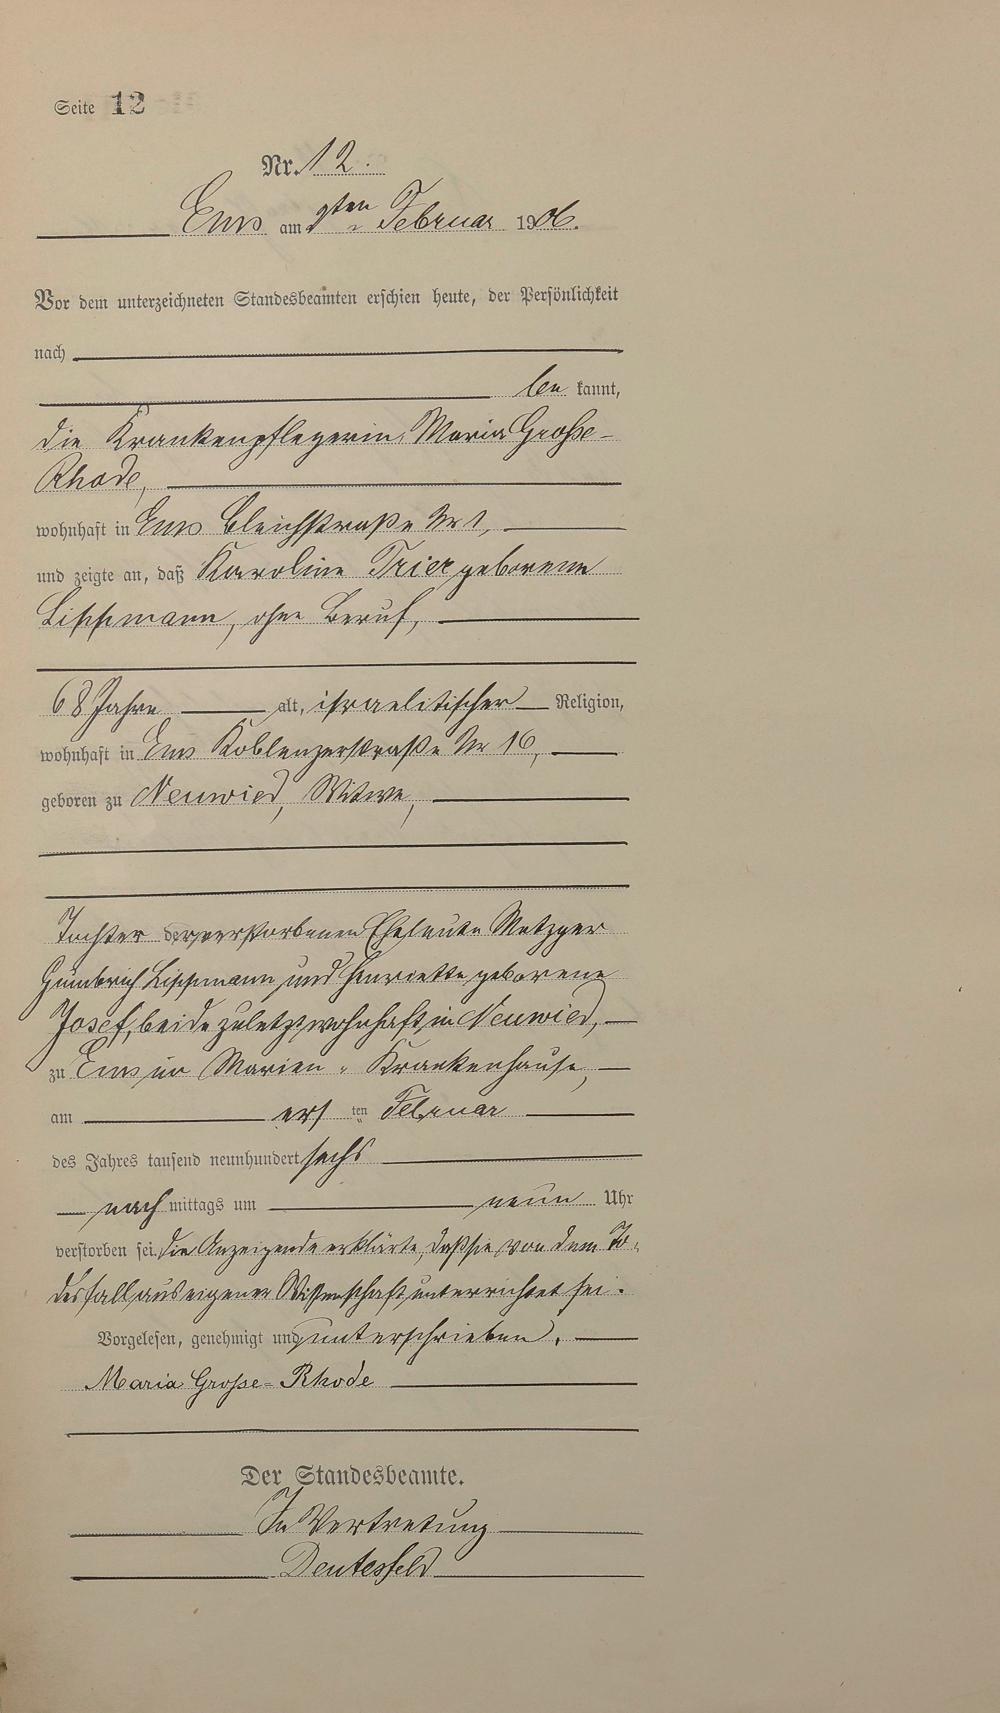 Seite 12
Nr. 12.
Ems am 2ten Februar 1906.
Vor dem unterzeichneten Standesbeamten erschien heute, der Persönlichkeit
nach
be kannt,
die Krankenpflegerin Maria Große-
Rhode,
wohnhaft in Ems Bleichstraße Nr 1,
und zeigte an, daß Karoline Trier geborene
Lippmann, ohne Beruf,
68 Jahre alt, israelitischer Religion,
wohnhaft in Ems Koblenzerstraße Nr 16,
geboren zu Neuwied, Witwe,
Tochter der verstorbenen Eheleute Metzger
Lippmann und Henriette geborene
Josef, beide zuletzt wohnhaft in Neuwied,
zu Ems im Marien-Krankenhause,
am ers ten Februar
des Jahres tausend neunhundert sechs
nach mittags um neun Uhr
verstorben sei. Die Anzeigende erklärte, daß sie von dem To-
desfall aus eigener Wissenschaft unterrichtet sei.
Vorgelesen, genehmigt und unterschrieben.
Maria Große-Rhode
Der Standesbeamte.
In Vertretung